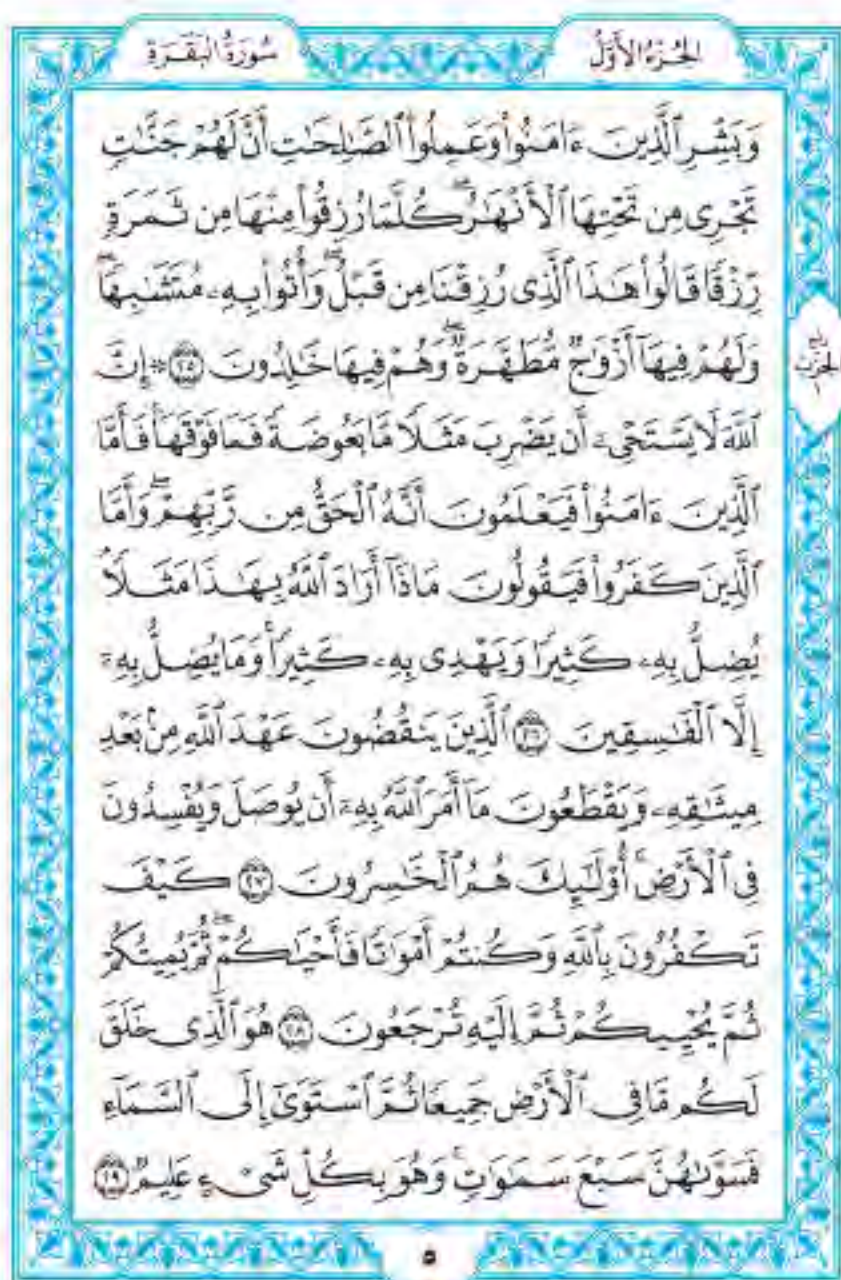 الجُزْءُ الأَوَّلُ
سُورَةُ البَقَرَةِ
وَبَشِّرِ ٱلَّذِينَ ءَامَنُواْ وَعَمِلُواْ ٱلصَّٰلِحَٰتِ أَنَّ لَهُمْ جَنَّٰتٍ
تَجْرِى مِن تَحْتِهَا ٱلْأَنْهَٰرُ ۖ كُلَّمَا رُزِقُواْ مِنْهَا مِن ثَمَرَةٍ
رِّزْقًا قَالُواْ هَٰذَا ٱلَّذِى رُزِقْنَا مِن قَبْلُ ۖ وَأُتُواْ بِهِۦ مُتَشَٰبِهًا ۖ
وَلَهُمْ فِيهَآ أَزْوَٰجٌ مُّطَهَّرَةٌ ۖ وَهُمْ فِيهَا خَٰلِدُونَ ٢٥ ۞ إِنَّ
ٱللَّهَ لَا يَسْتَحْىِۦٓ أَن يَضْرِبَ مَثَلًا مَّا بَعُوضَةً فَمَا فَوْقَهَا ۚ فَأَمَّا
ٱلَّذِينَ ءَامَنُواْ فَيَعْلَمُونَ أَنَّهُ ٱلْحَقُّ مِن رَّبِّهِمْ ۖ وَأَمَّا
ٱلَّذِينَ كَفَرُواْ فَيَقُولُونَ مَاذَآ أَرَادَ ٱللَّهُ بِهَٰذَا مَثَلًا ۘ
يُضِلُّ بِهِۦ كَثِيرًا وَيَهْدِى بِهِۦ كَثِيرًا ۚ وَمَا يُضِلُّ بِهِۦٓ
إِلَّا ٱلْفَٰسِقِينَ ٢٦ ٱلَّذِينَ يَنقُضُونَ عَهْدَ ٱللَّهِ مِنۢ بَعْدِ
مِيثَٰقِهِۦ وَيَقْطَعُونَ مَآ أَمَرَ ٱللَّهُ بِهِۦٓ أَن يُوصَلَ وَيُفْسِدُونَ
فِى ٱلْأَرْضِ ۚ أُوْلَٰٓئِكَ هُمُ ٱلْخَٰسِرُونَ ٢٧ كَيْفَ
تَكْفُرُونَ بِٱللَّهِ وَكُنتُمْ أَمْوَٰتًا فَأَحْيَٰكُمْ ۖ ثُمَّ يُمِيتُكُمْ
ثُمَّ يُحْيِيكُمْ ثُمَّ إِلَيْهِ تُرْجَعُونَ ٢٨ هُوَ ٱلَّذِى خَلَقَ
لَكُم مَّا فِى ٱلْأَرْضِ جَمِيعًا ثُمَّ ٱسْتَوَىٰٓ إِلَى ٱلسَّمَآءِ
فَسَوَّىٰهُنَّ سَبْعَ سَمَٰوَٰتٍ ۚ وَهُوَ بِكُلِّ شَىْءٍ عَلِيمٌ ٢٩
ربع
الحزب
١
٥